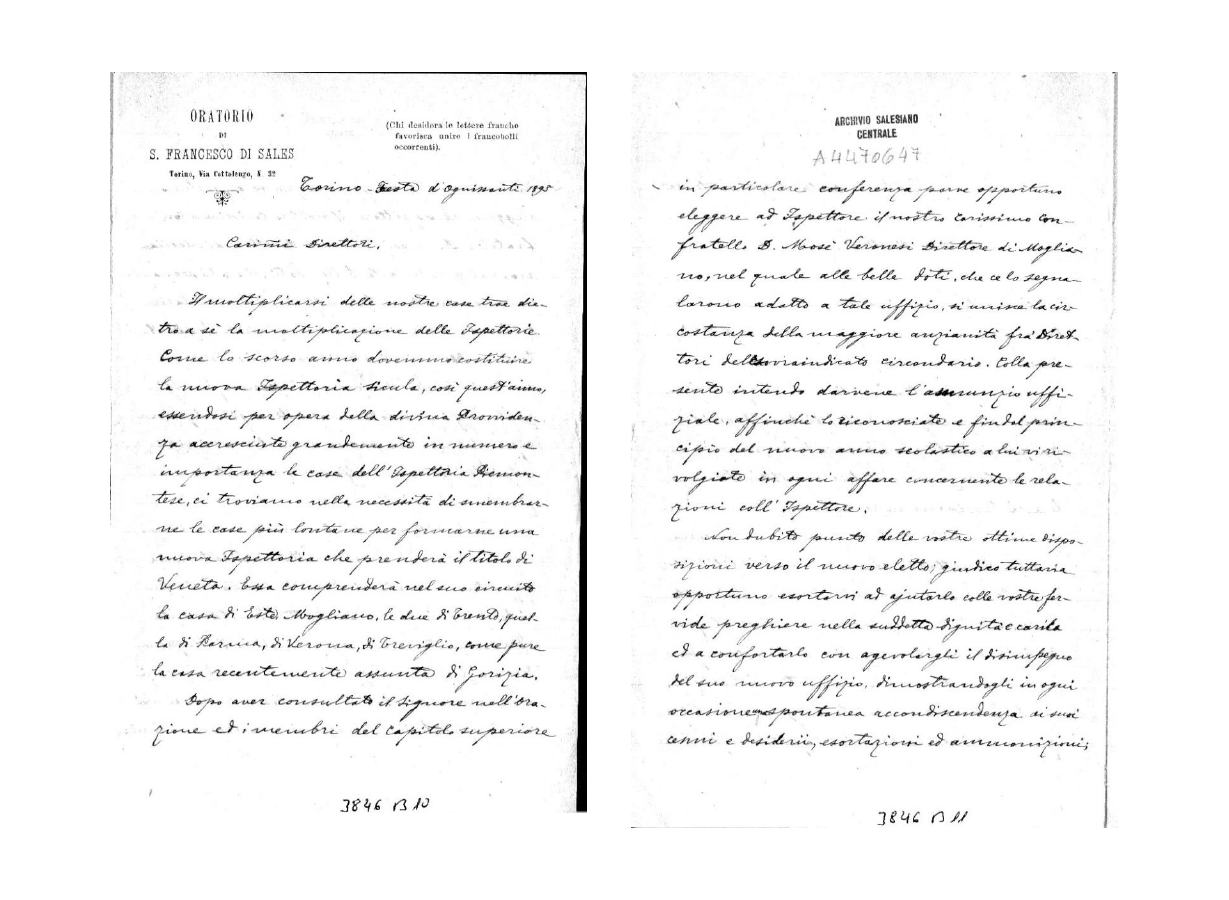 ORATORIO
DI
S. FRANCESCO DI SALES
Torino, Via Cottolengo, N. 32
(Chi desidera le lettere franche
favorisca unire i francobolli
occorrenti).
Torino Festa d'Ognissanti 1895
Carimi Direttori,
Il moltiplicarsi delle nostre case trae die-
tro a sè la moltiplicazione delle Ispettorie
Come lo scorso anno dovemmo costituire
la nuova Ispettoria sicula, così quest'anno,
essendosi per opera della divina Providen-
za accresciute grandemente in numero e
importanza le case dell'Ispettoria Piemon-
tese, ci troviamo nella necessità di smembrar-
ne le case più lontane per formarne una
nuova Ispettoria che prenderà il titolo di
Veneta. Essa comprenderà nel suo circuito
la casa di Este, Mogliano, le due di Trento, quel-
la di Parma, di Verona, di Treviglio, come pure
la casa recentemente assunta di Gorizia.
Dopo aver consultato il Signore nell'Ora-
zione ed i membri del capitolo superiore
3846 B 10
ARCHIVIO SALESIANO
CENTRALE
A4470647
in particolare conferenza parve opportuno
eleggere ad Ispettore il nostro carissimo Con-
fratello D. Mosè Veronesi Direttore di Moglia-
no, nel quale alle belle doti, che ce lo segna-
larono adatto a tale uffizio, si unisce la cir-
costanza della maggiore anzianità fra Diret-
tori del sovraindicato circondario. Colla pre-
sente intendo darvene l'annunzio uffi-
ziale, affinchè lo riconosciate e fin dal prin-
cipio del nuovo anno scolastico a lui vi ri-
volgiate in ogni affare concernente le rela-
zioni coll'Ispettore.
Non dubito punto delle vostre ottime dispo-
sizioni verso il nuovo eletto; giudico tuttavia
opportuno esortarvi ad ajutarlo colle vostre fer-
vide preghiere nella suddetta dignità e carità
ed a confortarlo con agevolargli il disimpegno
del suo nuovo uffizio, dimostrandogli in ogni
occasione spontanea accondiscendenza ai suoi
cenni e desiderii, esortazioni ed ammonizioni;
3846 B 11